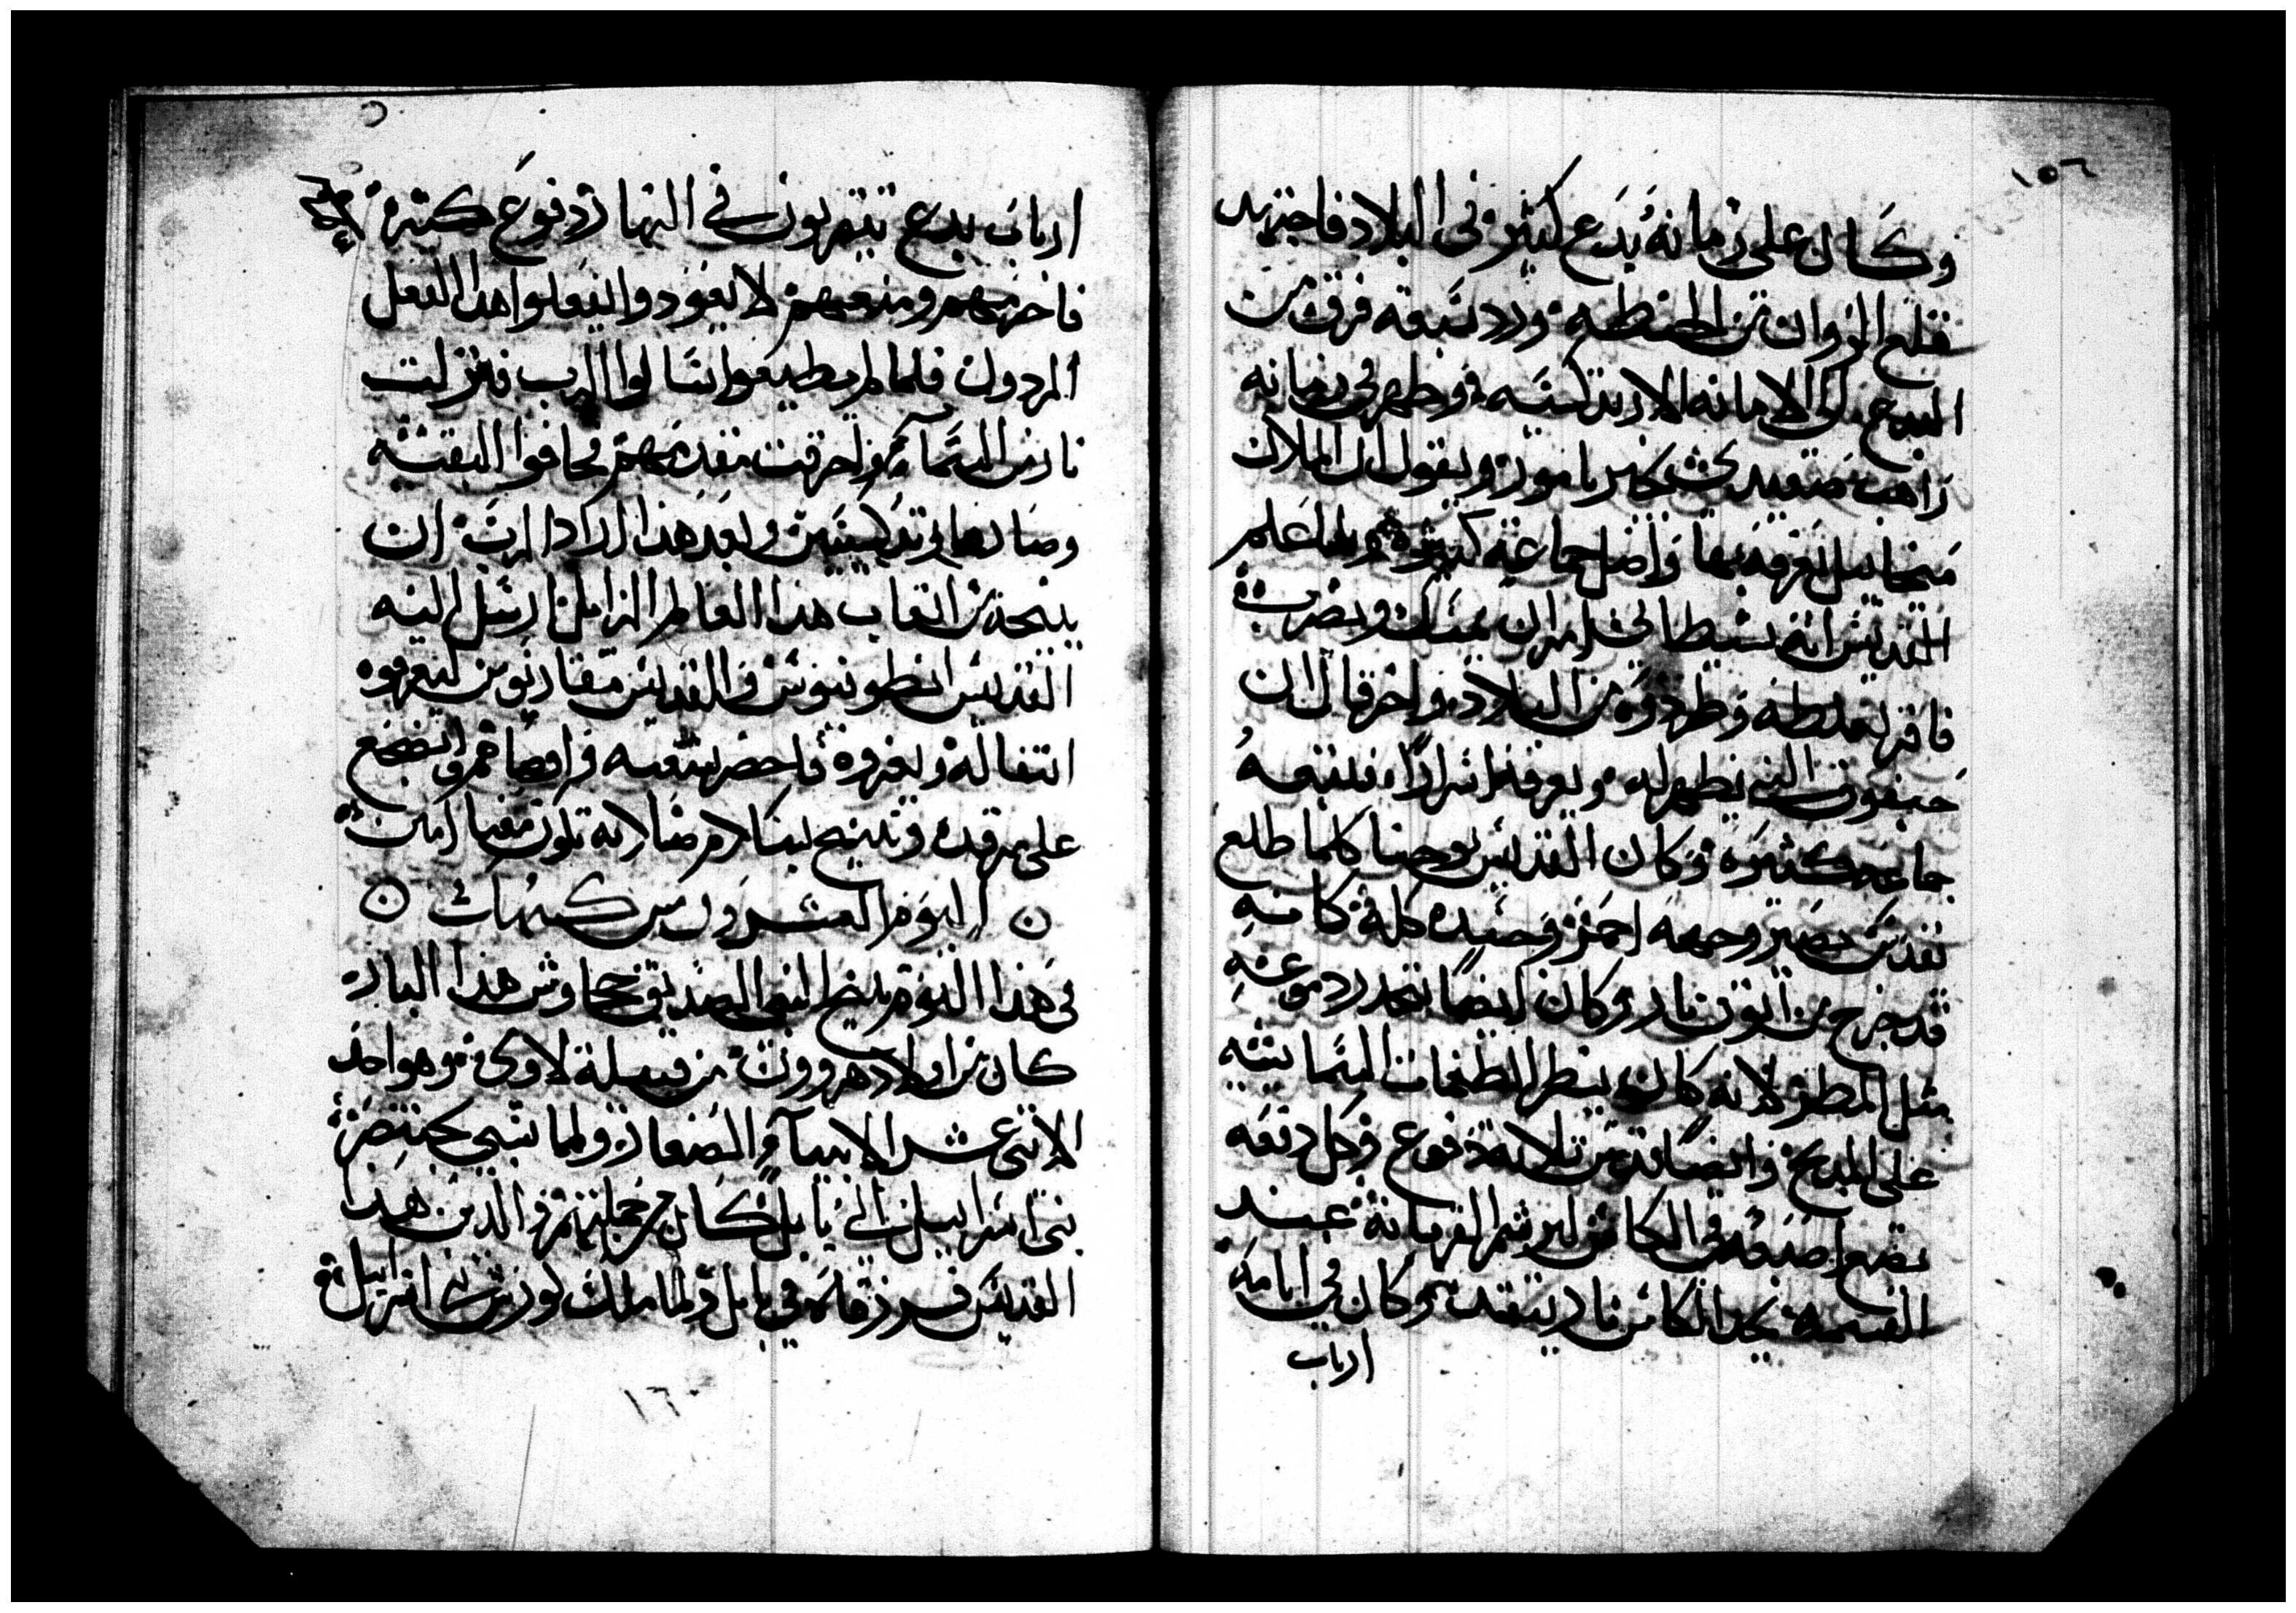 ١٥٦
وكان على زمانه بدع كثيره فى البلاد فاجتهد
قلع الزوان من الحنطه ورد تبعه فرق من
البدع الى الامانه الارتدكسيه وظهر فى زمانه
راهب صعيدى يخبر بامور ويقول ان الملاك
ميخاييل يعرفه بها واضل جماعه كثيره ولما علم
القديس انه شيطانى امر ان يمسك ويضرب
فاقر بغلطه وطردوه من البلاد واخر قال ان
حبقوق النبى يظهر له ويعرفه اسرارا فتبعه
جماعه كثيره وكان القديس يوحنا كلما طلع
يقدس يصير وجهه احمر وجسده كله كانه
قد خرج من اتون نار وكان ايضا تتحدر دموعه
مثل المطر لانه كان ينظر الطغمات السماييه
على المدبح وايضا من تلاته دفوع وكل دفعه
يضع اصبعه فى الكاس ليرشم القربانه عند
القسمه يجد الكاس نار يتقد وكان فى ايامه
ارباب
ارباب بدع يتقربون فى النهار دفوع كتيره
فاحرمهم ومنعهم لا يعودوا يفعلوا هدا الفعل
المردول فلما لم يطيعوا سال الرب فنزلت
نار من السما واحرقت مقدمهم فخافوا البقيه
وصاروا ارتدكسيين وبعد هذا اراد الرب ان
ينيحه من اتعاب هدا العالم الزايل ارسل اليه
القديس انطونيوس والقديس مقاريوس ليعرفوه
انتقاله ويعزوه فاحضر شعبه واوصاهم واضجع
على مرقده وتنيح بسلام صلاته تكون معنا امين
اليوم العشرون من كيهك
فى هذا اليوم تنيح النبى الصديق حجاوس هذا البار
كان من اولاد هرون من قبيله لاوى وهو احد
الاتنى عشر الانبيا الصغار ولما سبى بختنصر
بنى اسراييل الى بابل كان من جملتهم والدين هدا
القديس فرزقاه فى بابل ولما ملك كورش بنى اسراييل
١٦٠